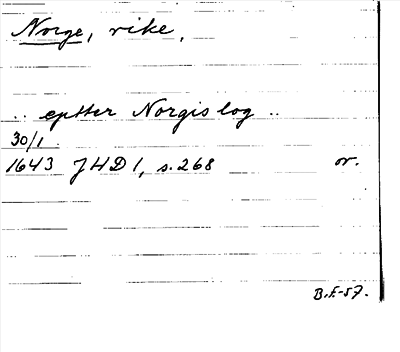 Norge, rike,
.. eptter Norgis log ..
30/1
1643 JHD 1, s.268 or.
B.F.-57.